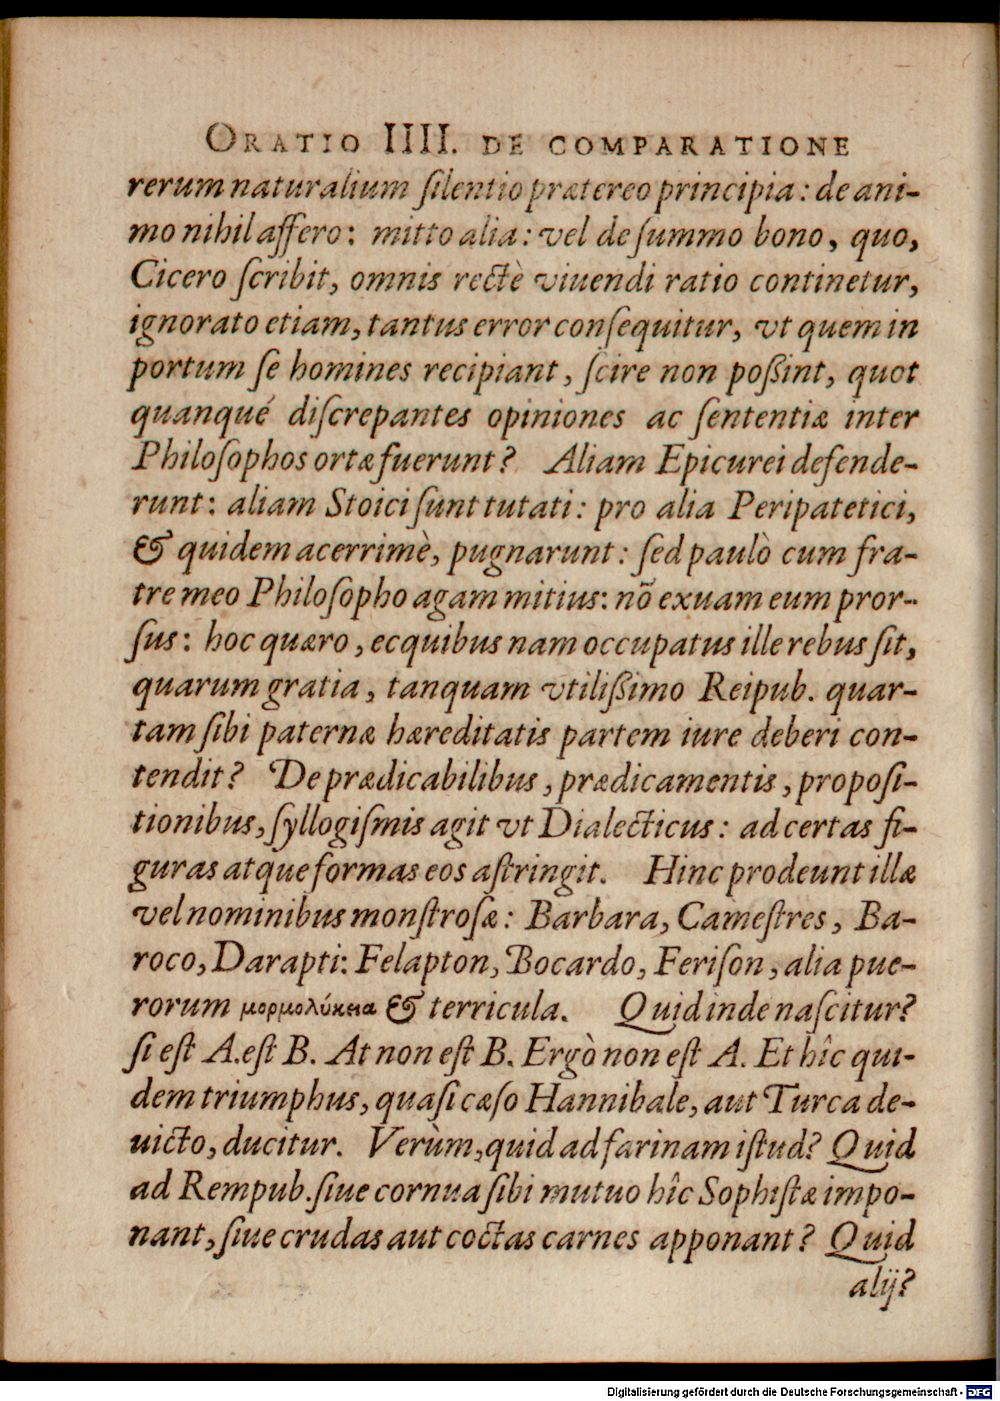 ORATIO IIII. DE COMPARATIONE
rerum naturalium ſilentio prætereo principia: de ani-
mo nihil affero: mitto alia: vel de ſummo bono, quo,
Cicero ſcribit, omnis rectè viuendi ratio continetur,
ignorato etiam, tantus error conſequitur, vt quem in
portum ſe homines recipiant, ſcire non poßint, quot
quanqué diſcrepantes opiniones ac ſententiæ inter
Philoſophos ortæ fuerunt? Aliam Epicurei defende-
runt: aliam Stoici ſunt tutati: pro alia Peripatetici,
& quidem acerrimè, pugnarunt: ſed paulò cum fra-
tre meo Philoſopho agam mitius: nõ exuam eum pror-
ſus: hoc quæro, ecquibus nam occupatus ille rebus ſit,
quarum gratia, tanquam vtilißimo Reipub. quar-
tam ſibi paternæ hæreditatis partem iure deberi con-
tendit? De prædicabilibus, prædicamentis, propoſi-
tionibus, ſyllogiſmis agit vt Dialecticus: ad certas fi-
guras atque formas eos aſtringit. Hinc prodeunt illæ
vel nominibus monſtroſæ: Barbara, Cameſtres, Ba-
roco, Darapti: Felapton, Bocardo, Feriſon, alia pue-
rorum μορμολύκεια & terricula. Quid inde naſcitur?
ſi eſt A. eſt B. At non eſt B. Ergò non eſt A. Et hîc qui-
dem triumphus, quaſi cæſo Hannibale, aut Turca de-
uicto, ducitur. Verùm, quid ad farinam iſtud? Quid
ad Rempub. ſiue cornua ſibi mutuo hîc Sophiſtæ impo-
nant, ſiue crudas aut coctas carnes apponant? Quid
alij?
Digitalisierung gefördert durch die Deutsche Forschungsgemeinschaft - DFG